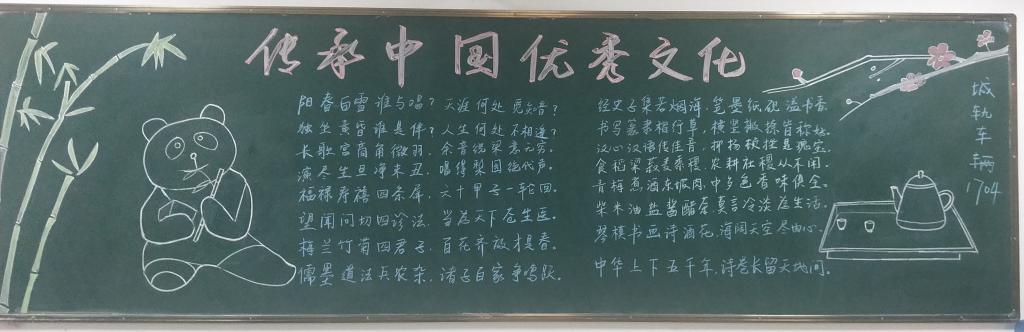 传承中国优秀文化
阳春白雪谁与唱？天涯何处觅知音？
独坐黄昏谁是伴？人生何处不相逢？
长歌宫商角徵羽，余音绕梁意无穷。
演尽生旦净末丑，唱得梨园绝代声。
福禄寿禧四条屏，六十甲子一轮回。
望闻问切四诊法，当为天下苍生医。
梅兰竹菊四君子，百花齐放才是春。
儒墨道法兵农杂，诸子百家争鸣跃。
经史子集若烟海，笔墨纸砚溢书香。
书写篆隶楷行草，横竖撇捺皆称妙。
汉心汉语传佳音，抑扬顿挫是瑰宝。
食稻梁菽麦黍稷，农耕社稷从不闲。
青梅煮酒东坡肉，中乡色香味俱全。
柴米油盐酱醋茶，真言冷淡为生活。
琴棋书画诗酒花，海阔天空尽由心。
中华上下五千年，诗卷长留天地间。
城轨车辆1704